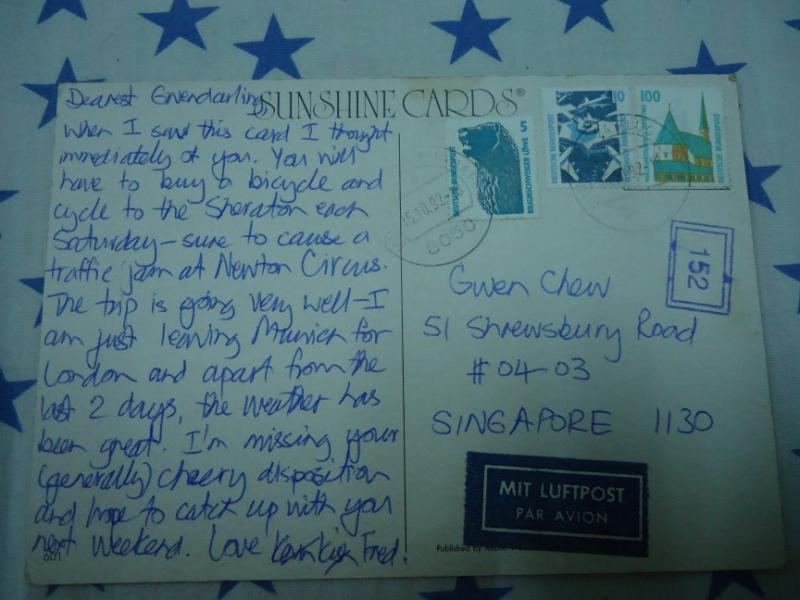 SUNSHINE CARDS®
Dearest Gwendarling
When I saw this card I thought
immediately of you. You will
have to buy a bicycle and
cycle to the Sheraton each
Saturday - sure to cause a
traffic jam at Newton Circus.
The trip is going very well - I
am just leaving Munich for
London and apart from the
last 2 days, the weather has
been great. I'm missing your
(generally) cheery disposition
and hope to catch up with you
next weekend. Love Fred!
601
DEUTSCHE BUNDESPOST
5
BRAUNSCHWEIGER LÖWE
10
DEUTSCHE BUNDESPOST
100
DEUTSCHE BUNDESPOST
8050
152
Gwen Chew
51 Shrewsbury Road
#04-03
SINGAPORE 1130
MIT LUFTPOST
PAR AVION
Published by